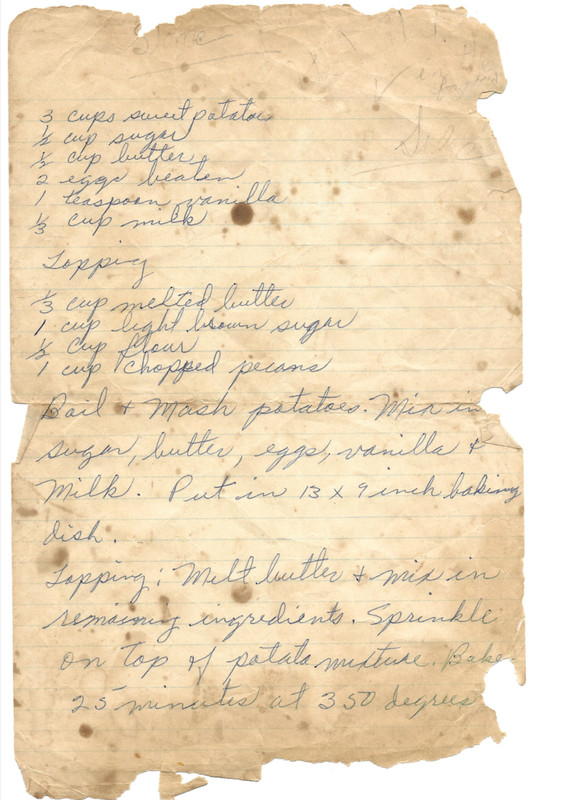 3 cups sweet potatoe
½ cup sugar
½ cup butter
2 eggs beaten
1 teaspoon vanilla
⅓ cup milk
Topping
⅓ cup melted butter
1 cup light brown sugar
½ cup flour
1 cup chopped pecans
Boil + Mash potatoes. Mix in
sugar, butter, eggs, vanilla +
Milk. Put in 13 x 9 inch baking
dish.
Topping: Melt butter + mix in
remaining ingredients. Sprinkle
on top of potato mixture. Bake
25 minutes at 350 degrees